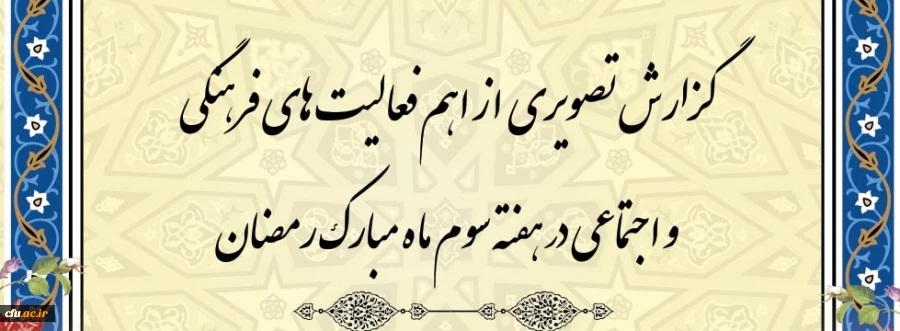 گزارش تصویری از اهم فعالیت‌های فرهنگی
و اجتماعی در هفته سوم ماه مبارک رمضان
cfu.ac.ir